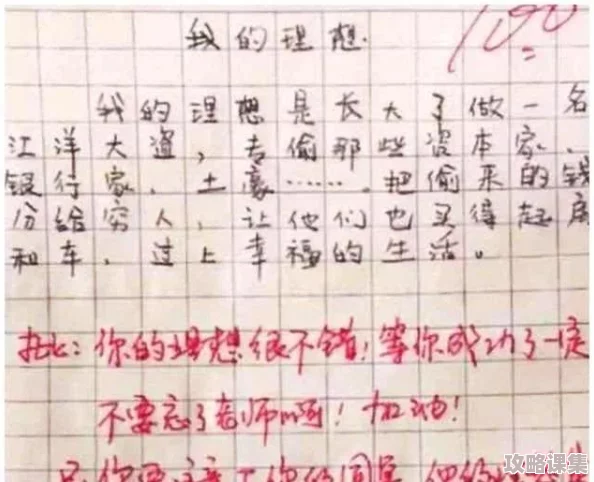 我的理想.
100
我的理想是长大了做一名
江洋大盗,专偷那些资本家、
银行家、土豪……把偷来的钱
分给穷人,让他们也买得起房
和车,过上幸福的生活。
批:你的理想很不错!等你成功了一定
不要忘了老师啊!加油!
你 你的同
攻略课集